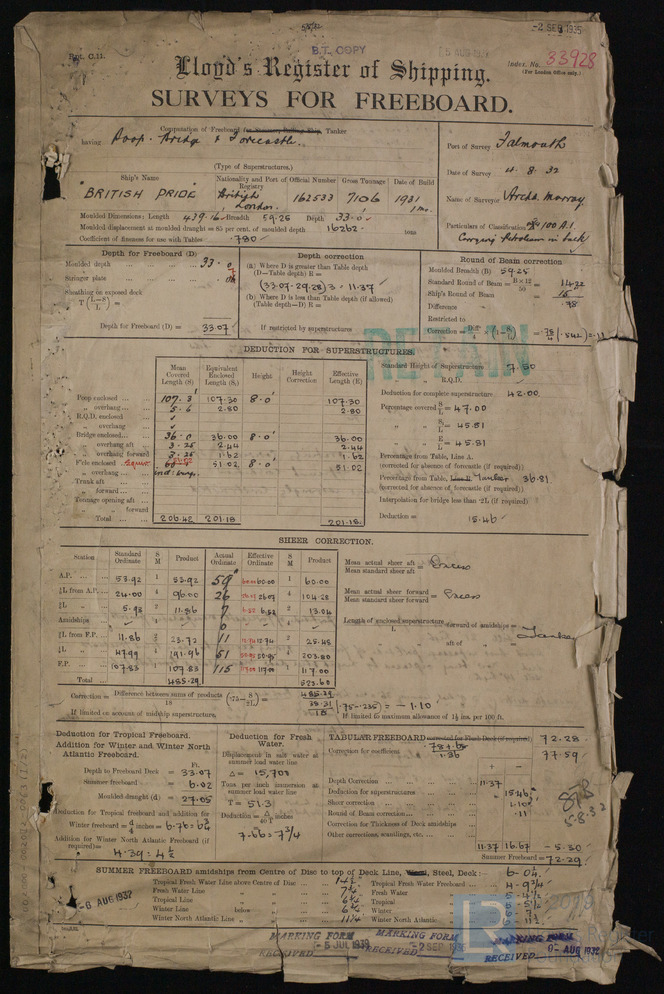 5/8/32
-2 SEP 1935
Rpt. C.11.
B.T. COPY
5 AUG 193
Index. No. 33928
(For London Office only.)
Lloyd's Register of Shipping.
SURVEYS FOR FREEBOARD.
Computation of Freeboard for Steamer, Sailing Ship, Tanker
having Poop. Bridge & Forecastle.
(Type of Superstructures.)
Port of Survey Falmouth
Date of Survey 4. 8. 32
Name of Surveyor Archd. Murray
Particulars of Classification 100 A1
Carrying Petroleum in bulk
Ship's Name
Nationality and Port of Registry
Official Number
Gross Tonnage
Date of Build
"BRITISH PRIDE"
British
London.
162533
7106
1931
1 mo.
Moulded Dimensions: Length 439.16 Breadth 59.25 Depth 33.0
Moulded displacement at moulded draught = 85 per cent. of moulded depth 16262 tons
Coefficient of fineness for use with Tables .780
Depth for Freeboard (D)
Moulded depth 33.0
Stringer plate
Sheathing on exposed deck
T (L-S / L) =
Depth for Freeboard (D) = 33.07
Depth correction
(a) Where D is greater than Table depth
(D—Table depth) R =
(33.07-29.28) 3 = 11.37
(b) Where D is less than Table depth (if allowed)
(Table depth—D) R =
If restricted by superstructures
Round of Beam correction
Moulded Breadth (B) 59.25
Standard Round of Beam = B × 12 / 50 = 14.22
Ship's Round of Beam = 15
Difference .78
Restricted to
Correction = .78 / 4 (.542) = .11
RETAIN
DEDUCTION FOR SUPERSTRUCTURES.
Mean Covered Length (S)
Equivalent Enclosed Length (S₁)
Height
Height Correction
Effective Length (E)
Poop enclosed 107.3 107.30 8.0 107.30
„ overhang 5.6 2.80 2.80
R.Q.D. enclosed
„ overhang
Bridge enclosed 36.0 36.00 8.0 36.00
„ overhang aft 3.25 2.44 2.44
„ overhang forward 3.25 1.62 1.62
F'cle enclosed 51.02 8.0 51.02
„ overhang
Trunk aft
„ forward
Tonnage opening aft
„ forward
Total 206.42 201.18 201.18
Standard Height of Superstructure 7.50
„ „ R.Q.D.
Deduction for complete superstructure 42.00
Percentage covered S/L = 47.00
„ S₁/L = 45.81
„ E/L = 45.81
Percentage from Table, Line A.
(corrected for absence of forecastle (if required))
Percentage from Table, Tanker 36.81
(corrected for absence of forecastle (if required))
Interpolation for bridge less than ·2L (if required)
Deduction = 15.46
SHEER CORRECTION.
Station
Standard Ordinate
S M
Product
Actual Ordinate
Effective Ordinate
S M
Product
A.P. 53.92 1 53.92 59 60.00 1 60.00
⅙L from A.P. 24.00 4 96.00 26 26.07 4 104.28
⅓L „ 5.93 2 11.86 7 6.52 2 13.04
Amidships 0
⅓L from F.P. 11.86 2 23.72 11 12.74 2 25.48
⅙L „ 47.99 4 191.96 51 50.95 4 203.80
F.P. 107.83 1 107.83 115 117.00 1 117.00
Total 485.29 523.60
Mean actual sheer aft / Mean standard sheer aft = Excess
Mean actual sheer forward / Mean standard sheer forward = Excess
Length of enclosed superstructure forward of amidships =
„ aft of „ =
Tanker
Correction = Difference between sums of products / 18 (·75 - S/2L) = 38.31 / 18 (.75-.235) = -1.10
If limited on account of midship superstructure.
If limited to maximum allowance of 1½ ins. per 100 ft.
Deduction for Tropical Freeboard.
Addition for Winter and Winter North Atlantic Freeboard.
Ft.
Depth to Freeboard Deck = 33.07
Summer freeboard = 6.02
Moulded draught (d) = 27.05
Deduction for Tropical freeboard and addition for
Winter freeboard = d/4 inches = 6.76 = 6¾
Addition for Winter North Atlantic Freeboard (if required) =
4.39 = 4½
Deduction for Fresh Water.
Displacement in salt water at summer load water line
Δ = 15,708
Tons per inch immersion at summer load water line
T = 51.3
Deduction = Δ / 40 T inches
7.66 = 7¾
TABULAR FREEBOARD corrected for Flush Deck (if required) 72.28
Correction for coefficient 1.36 77.59
+ -
Depth Correction 11.37
Deduction for superstructures 15.46
Sheer correction 1.10
Round of Beam correction .11
Correction for Thickness of Deck amidships
Other corrections, scantlings, etc.
11.37 16.67 -5.30
Summer Freeboard = 72.29
5.8.32
SUMMER FREEBOARD amidships from Centre of Disc to top of Deck Line, Steel, Deck: 6-0¼
Tropical Fresh Water Line above Centre of Disc 14½ Tropical Fresh Water Freeboard 4-9¾
Fresh Water Line „ 7¾ Fresh Water
Tropical Line „ 6¾ Tropical
Winter Line below 6¾ Winter 6-7
Winter North Atlantic Line „ 11¼ Winter North Atlantic
-8 AUG 1932
MARKING FORM
-5 JUL 1939
RECEIVED
MARKING FORM
-2 SEP 193
RECEIVED
MARKING FORM
AUG 1932
RECEIVED
LR